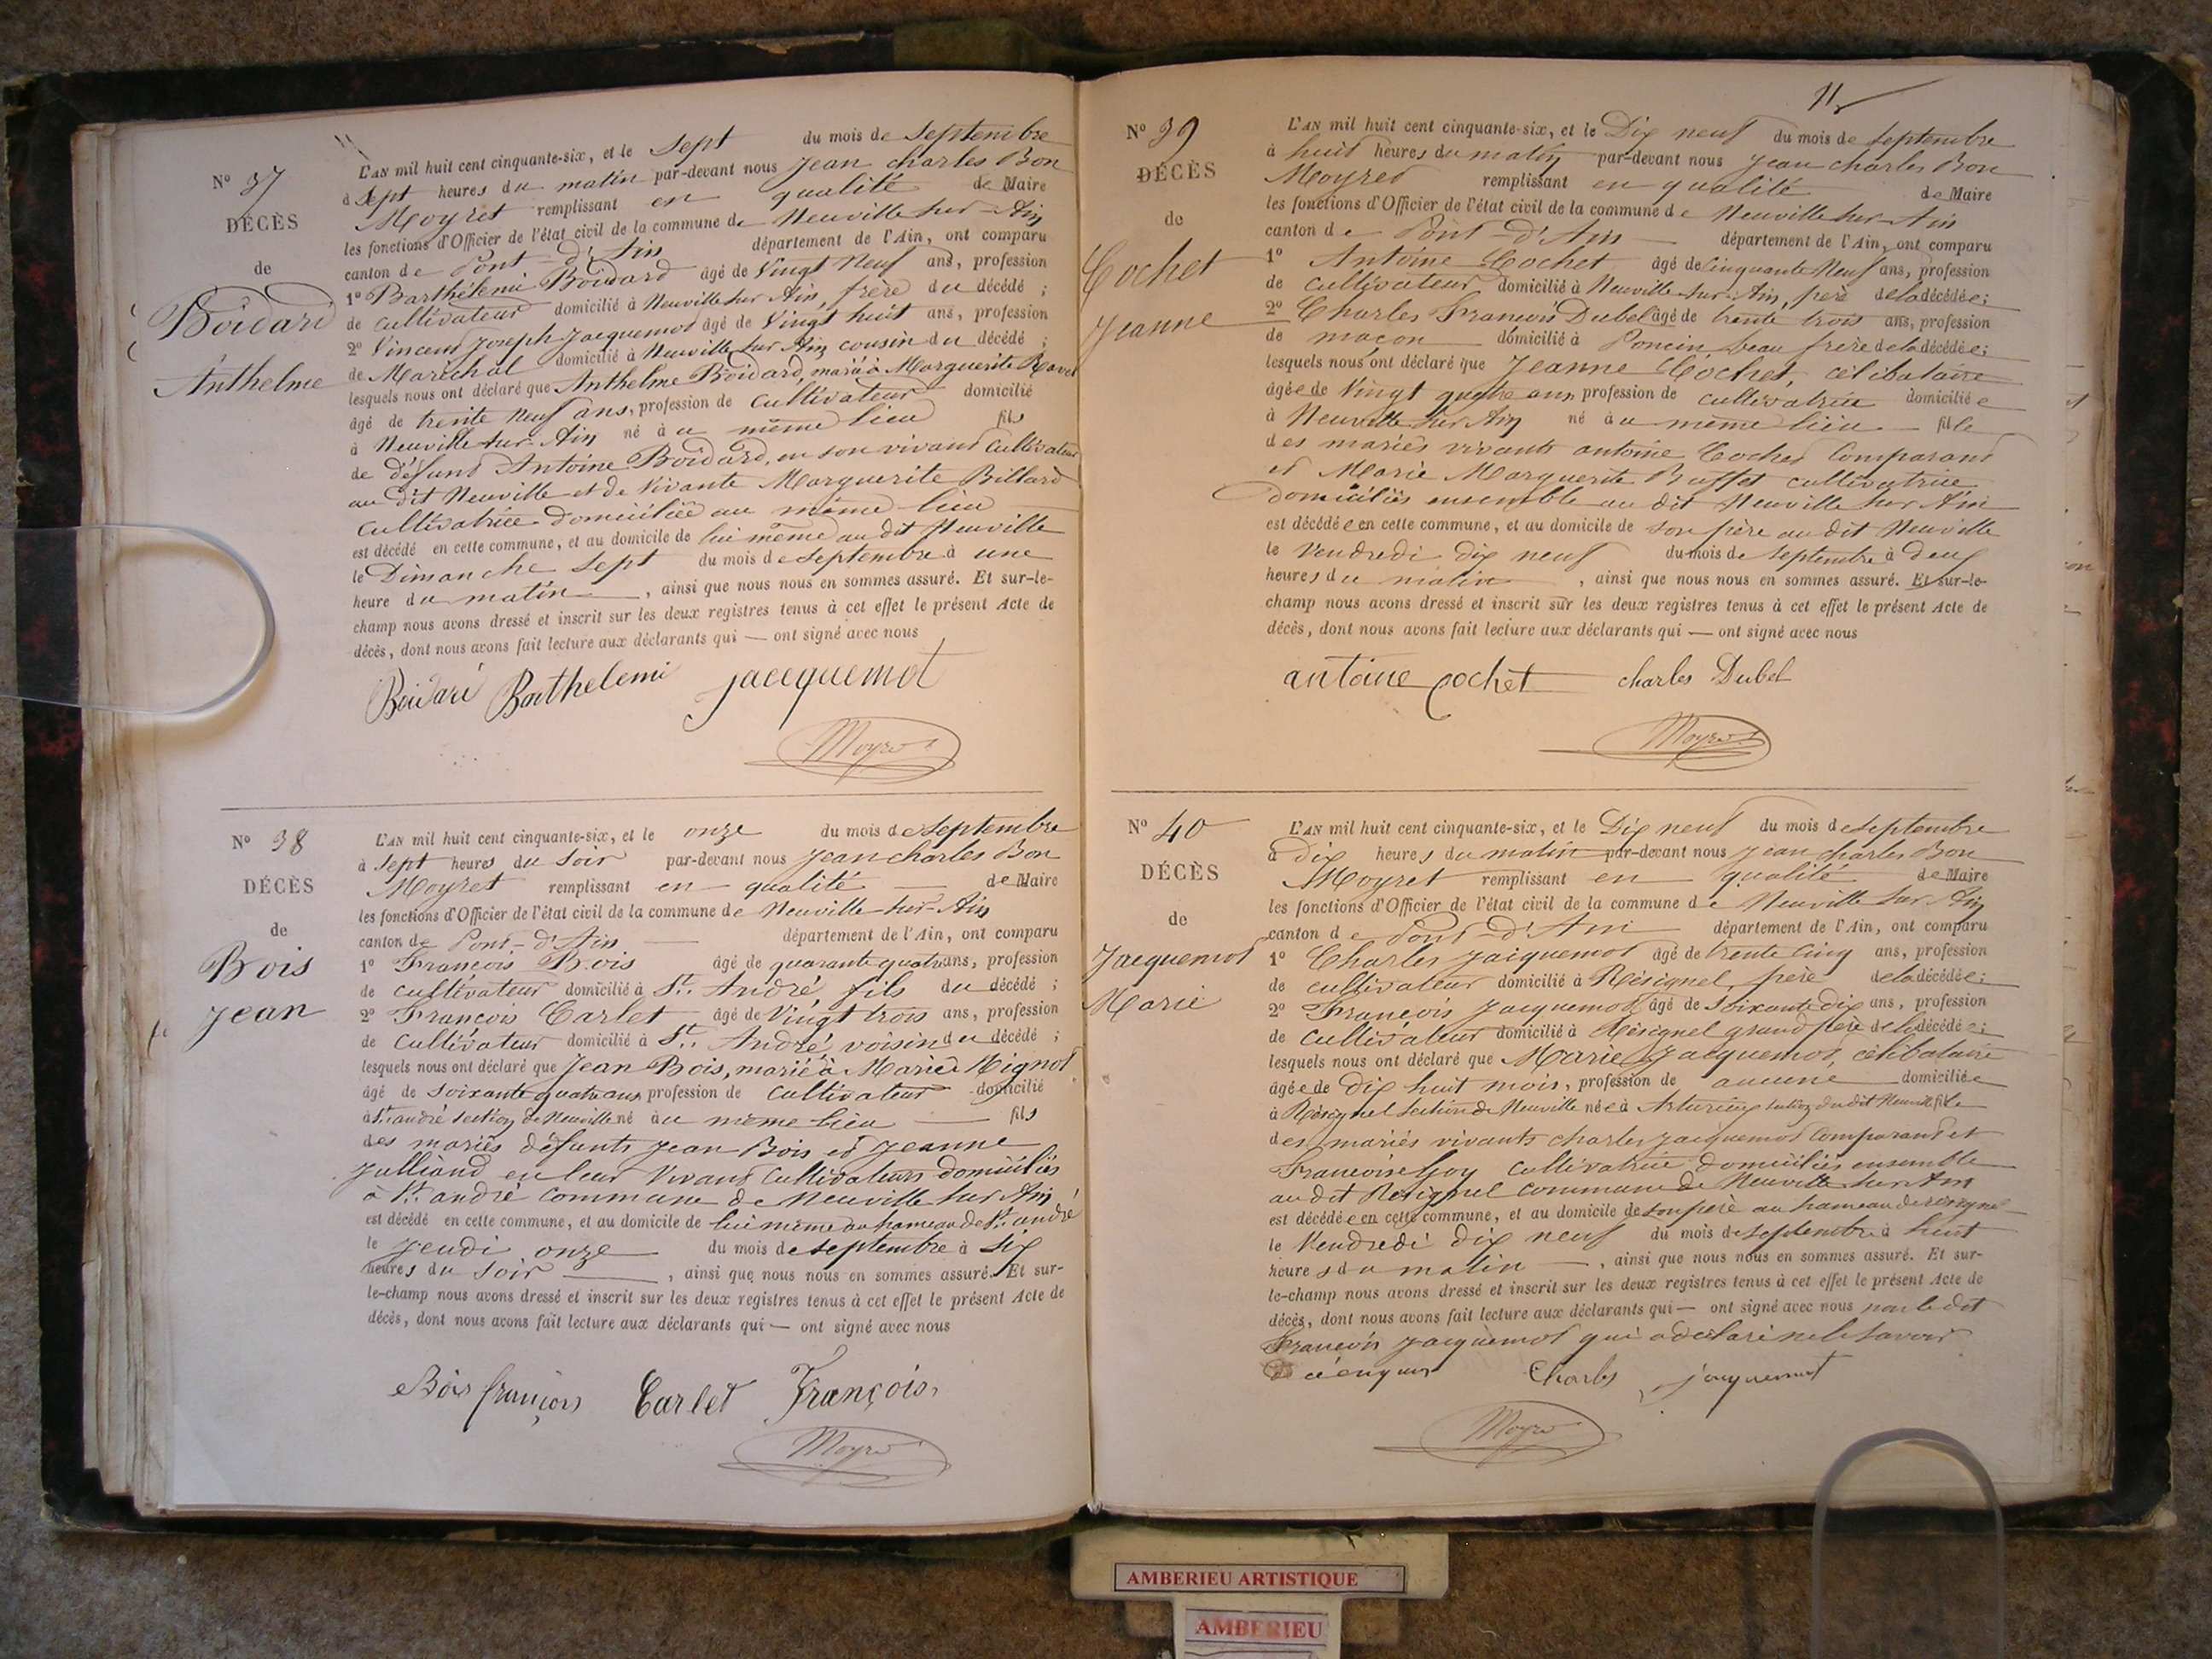 N° 37
DÉCÈS
de
Boidard
Anthelme
L'AN mil huit cent cinquante-six, et le sept du mois de Septembre
à sept heures du matin par-devant nous Jean charles Bon
Moyret remplissant en qualité de Maire
les fonctions d'Officier de l'état civil de la commune de Neuville sur-Ain
canton de Pont-d'Ain département de l'Ain, ont comparu
1° Barthélemi Boidard âgé de Vingt Neuf ans, profession
de cultivateur domicilié à Neuville sur Ain, frère du décédé ;
2° Vincent Joseph Jacquemot âgé de Vingt huit ans, profession
de Maréchal domicilié à Neuville sur Ain cousin du décédé ;
lesquels nous ont déclaré que Anthelme Boidard, marié à Marguerite Ravet
âgé de trente neuf ans, profession de cultivateur domicilié
à Neuville sur-Ain né à u même lieu fils
de défunt Antoine Boidard, en son vivant Cultivateur
au dit Neuville et de Vivante Marguerite Billard
cultivatrice domiciliée au même lieu
est décédé en cette commune, et au domicile de lui même au dit Neuville
le Dimanche sept du mois de septembre à une
heure du matin , ainsi que nous nous en sommes assuré. Et sur-le-
champ nous avons dressé et inscrit sur les deux registres tenus à cet effet le présent Acte de
décès, dont nous avons fait lecture aux déclarants qui — ont signé avec nous
Boidard Barthelemi jacequemot
Moyret
N° 38
DÉCÈS
de
Bois
Jean
L'AN mil huit cent cinquante-six, et le onze du mois de septembre
à sept heures du soir par-devant nous Jean charles Bon
Moyret remplissant en qualité de Maire
les fonctions d'Officier de l'état civil de la commune de Neuville-sur-Ain
canton de Pont-d'Ain département de l'Ain, ont comparu
1° François Bois âgé de quarante quatre ans, profession
de cultivateur domicilié à St. André fils du décédé ;
2° François Carlet âgé de Vingt trois ans, profession
de cultivateur domicilié à St. André voisin du décédé ;
lesquels nous ont déclaré que Jean Bois, marié à Marie Mignot
âgé de soixante quatre ans profession de cultivateur domicilié
à St. andré section de Neuville né à u même lieu fils
des mariés défunts Jean Bois et Jeanne
Julliand en leur Vivant Cultivateurs domiciliés
à St. andré commune de Neuville sur Ain
est décédé en cette commune, et au domicile de lui même au hameau de St. andré
le jeudi onze du mois de septembre à six
heures du soir , ainsi que nous nous en sommes assuré. Et sur-
le-champ nous avons dressé et inscrit sur les deux registres tenus à cet effet le présent Acte de
décès, dont nous avons fait lecture aux déclarants qui — ont signé avec nous
Bois françois Carlet François
Moyret
11
N° 39
DÉCÈS
de
Cochet
Jeanne
L'AN mil huit cent cinquante-six, et le Dix neuf du mois de septembre
à huit heures du matin par-devant nous Jean charles Bon
Moyret remplissant en qualité de Maire
les fonctions d'Officier de l'état civil de la commune de Neuville sur-Ain
canton de Pont-d'Ain département de l'Ain, ont comparu
1° Antoine Cochet âgé de Cinquante Neuf ans, profession
de cultivateur domicilié à Neuville-sur-Ain, père de la décédée ;
2° Charles François Dubel âgé de trente trois ans, profession
de maçon domicilié à Poncin beau frère de la décédée ;
lesquels nous ont déclaré que Jeanne Cochet, célibataire
âgée de Vingt quatre ans profession de cultivatrice domiciliée
à Neuville sur Ain né à u même lieu fille
des mariés vivants antoine Cochet Comparant
et Marie Marguerite Buffet cultivatrice
domiciliés ensemble au dit Neuville sur Ain
est décédée en cette commune, et au domicile de son père au dit Neuville
le Vendredi dix neuf du mois de septembre à deux
heures du matin , ainsi que nous nous en sommes assuré. Et sur-le-
champ nous avons dressé et inscrit sur les deux registres tenus à cet effet le présent Acte de
décès, dont nous avons fait lecture aux déclarants qui — ont signé avec nous
antoine cochet charles Dubel
Moyret
N° 40
DÉCÈS
de
Jacquemot
Marie
L'AN mil huit cent cinquante-six, et le Dix neuf du mois de septembre
à dix heures du matin par-devant nous Jean charles Bon
Moyret remplissant en qualité de Maire
les fonctions d'Officier de l'état civil de la commune de Neuville sur Ain
canton de Pont-d'Ain département de l'Ain, ont comparu
1° Charles Jacquemot âgé de trente Cinq ans, profession
de cultivateur domicilié à Résignel, père de la décédée ;
2° François Jacquemot, âgé de soixante dix ans, profession
de cultivateur domicilié à Résignel grand père de la décédée ;
lesquels nous ont déclaré que Marie Jacquemot, célibataire
âgée de dix huit mois, profession de aucune domiciliée
à Résignel section de Neuville née à section du dit Neuville fille
des mariés vivants charles Jacquemot Comparant et
Françoise Goy Cultivatrice domiciliés ensemble
au dit Résignel commune de Neuville sur Ain
est décédée en cette commune, et au domicile de son père au hameau de résignel
le Vendredi dix neuf du mois de septembre à huit
heures du matin , ainsi que nous nous en sommes assuré. Et sur-
le-champ nous avons dressé et inscrit sur les deux registres tenus à cet effet le présent Acte de
décès, dont nous avons fait lecture aux déclarants qui — ont signé avec nous non le dit
François Jacquemot qui a déclaré ne le savoir
de ce enquis Charles jacquemot
Moyret
AMBERIEU ARTISTIQUE
AMBERIEU